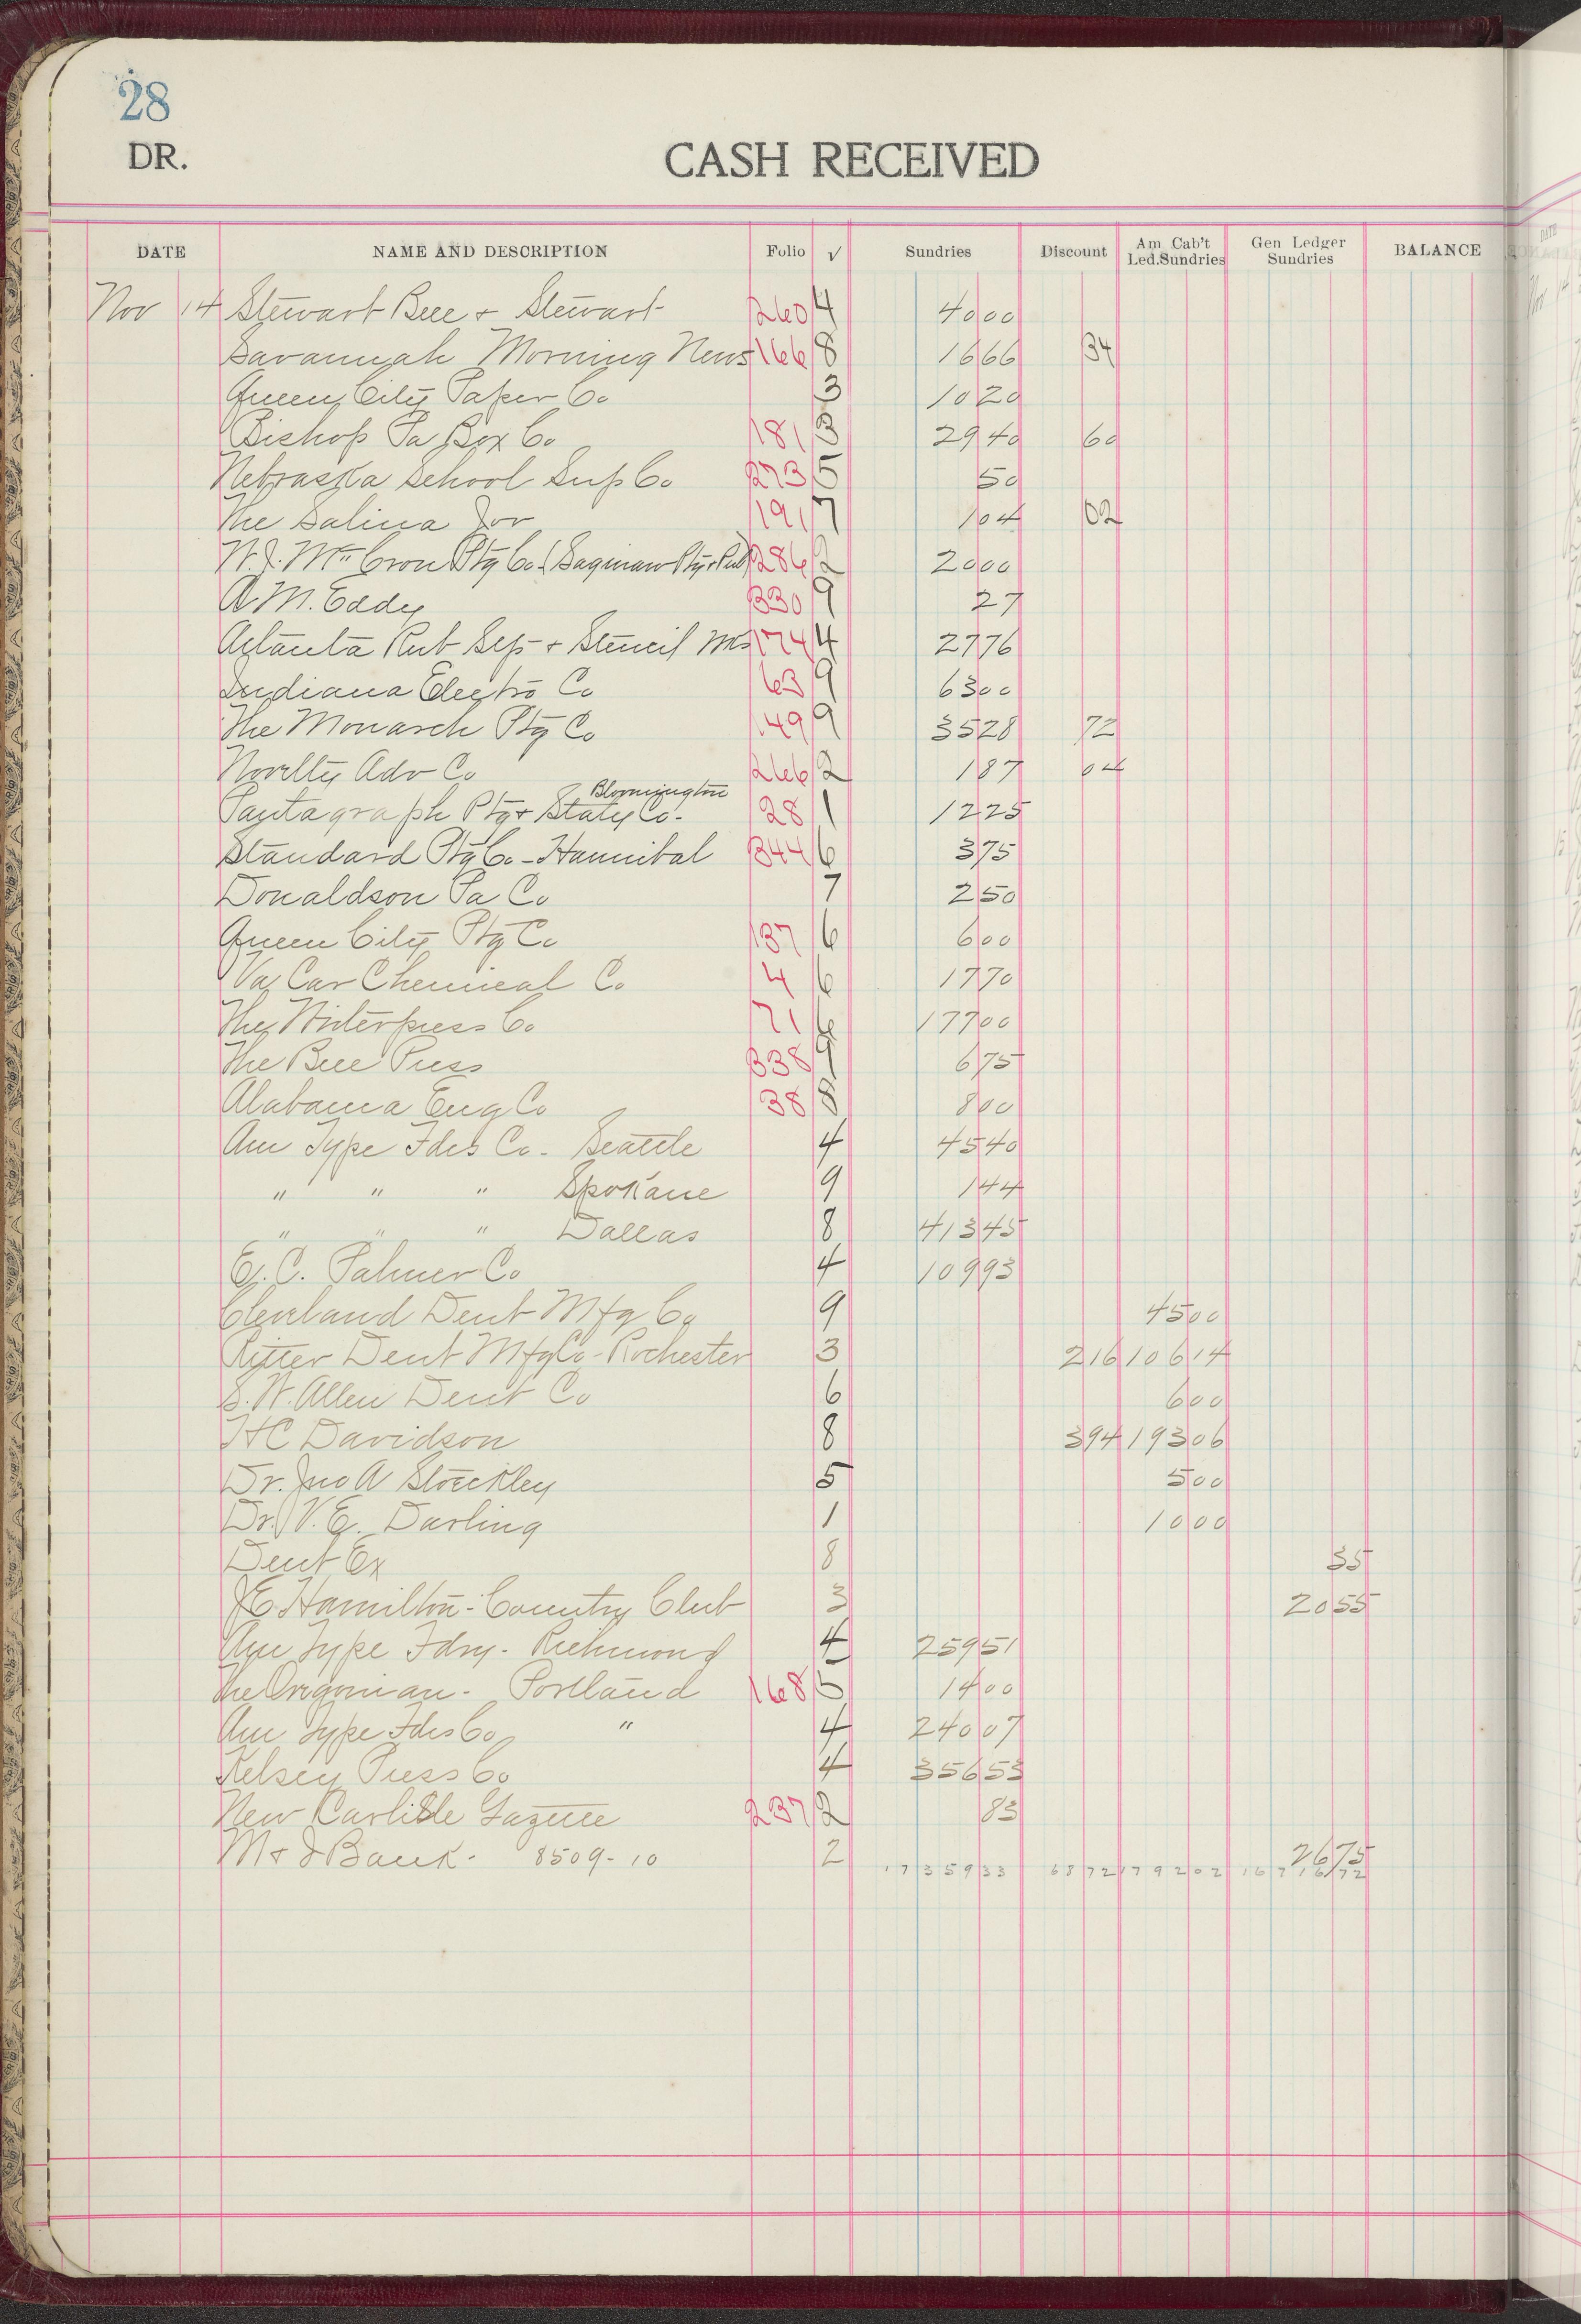 28
DR.
CASH RECEIVED
DATE NAME AND DESCRIPTION Folio √ Sundries Discount Am Cab't Led.Sundries Gen Ledger Sundries BALANCE
Nov 14 Stewart Bree + Stewart 260 4 40 00
Savannah Morning News 166 8 16 66 34
Queen City Paper Co 3 10 20
Bishop Pa Box Co 181 3 29 40 60
Nebraska School Sup Co 273 5 50
The Salina Jor 191 7 1 04 02
W.J. McCron Ptg Co. (Saginaw Ptg + Pub) 286 2 20 00
A M. Eddy 330 9 27
Atlanta Rub Stp + Stencil Wks 174 4 27 76
Indiana Electro Co 63 9 63 00
The Monarch Ptg Co 149 9 35 28 72
Novelty Adv Co 266 2 1 87 04
Pantagraph Ptg + Staty Co - Bloomington 28 1 12 25
Standard Ptg Co - Hannibal 344 6 3 75
Donaldson Pa Co 7 2 50
Queen City Ptg Co 137 6 6 00
Va Car Chemical Co 4 6 17 70
The Co 71 6 177 00
The Press 338 9 6 75
Alabama Eng Co 38 8 8 00
Am Type Fdrs Co - Seattle 4 45 40
" " " Spokane 9 1 44
" " " Dallas 8 413 45
E. C. Palmer Co 4 109 93
Cleveland Dent Mfg Co 9 45 00
Ritter Dent Mfg Co - Rochester 3 2 16 106 14
S. W. Allen Dent Co 6 6 00
H C Davidson 8 3 94 193 06
Dr. Jno A Stoeckley 5 5 00
Dr. V. E. Darling 1 10 00
Dent Ex 8 35
J E Hamilton - Country Club 3 20 55
Am Type Fdry - Richmond 4 259 51
The Oregonian - Portland 168 5 14 00
Am Type Fdrs Co " 4 240 07
Kelsey Press Co 4 356 53
New Carlisle Gazette 237 2 83
M + J Bank - 8509-10 2 26 75
17 35 9 33 68 72 17 9 2 02 16 7 1 6 72